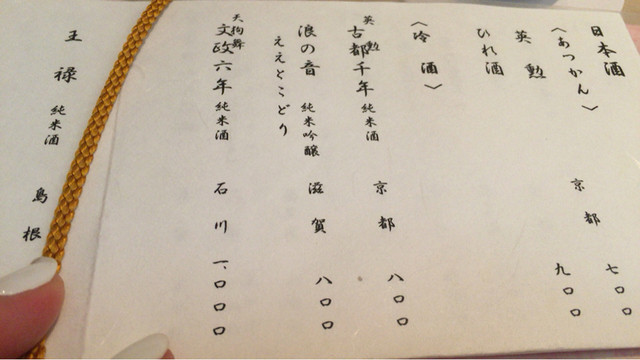 日本酒
〈あつかん〉
英勲 京都 七〇〇
ひれ酒 九〇〇
〈冷酒〉
英勲 古都千年 純米酒 京都 八〇〇
浪の音 純米吟醸 滋賀 八〇〇
ええとこどり
天狗舞 文政六年 純米酒 石川 一、〇〇〇
王禄 純米酒 島根